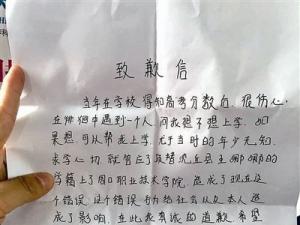 致歉信
当年在学校得知高考分数后，很伤心，
在徘徊中遇到一个人问我想不想上学，如
果想可以帮我上学，尤于当时的年少无知，
求学心切，就答应了
学籍上了周口职业技术学院，造成了现在这
个错误，这个错误有给社会从及本人造
成了影响，在此我真诚的道歉，希望